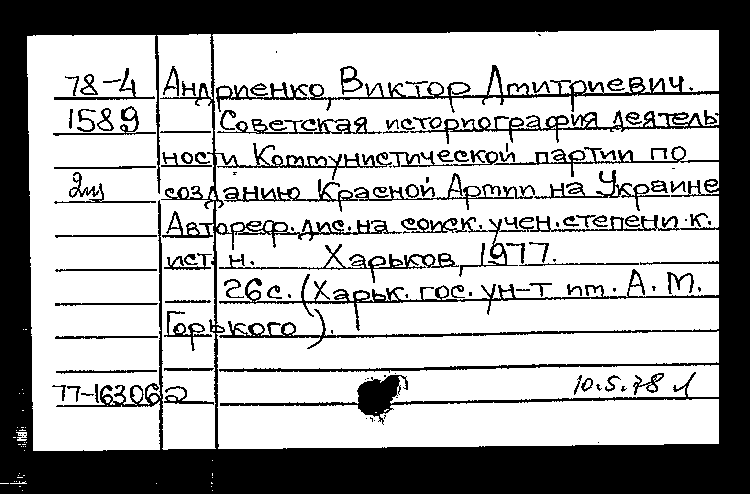 78-4 Андриенко, Виктор Дмитриевич.
1589 Советская историография деятель
ности Коммунистической партии по
2 созданию Красной Армии на Украине
Автореф. дис. на соиск. учен. степени к.
ист. н. Харьков, 1977.
26с. (Харьк. гос. ун-т им. А. М.
Горького).
77-16306
10.5.78